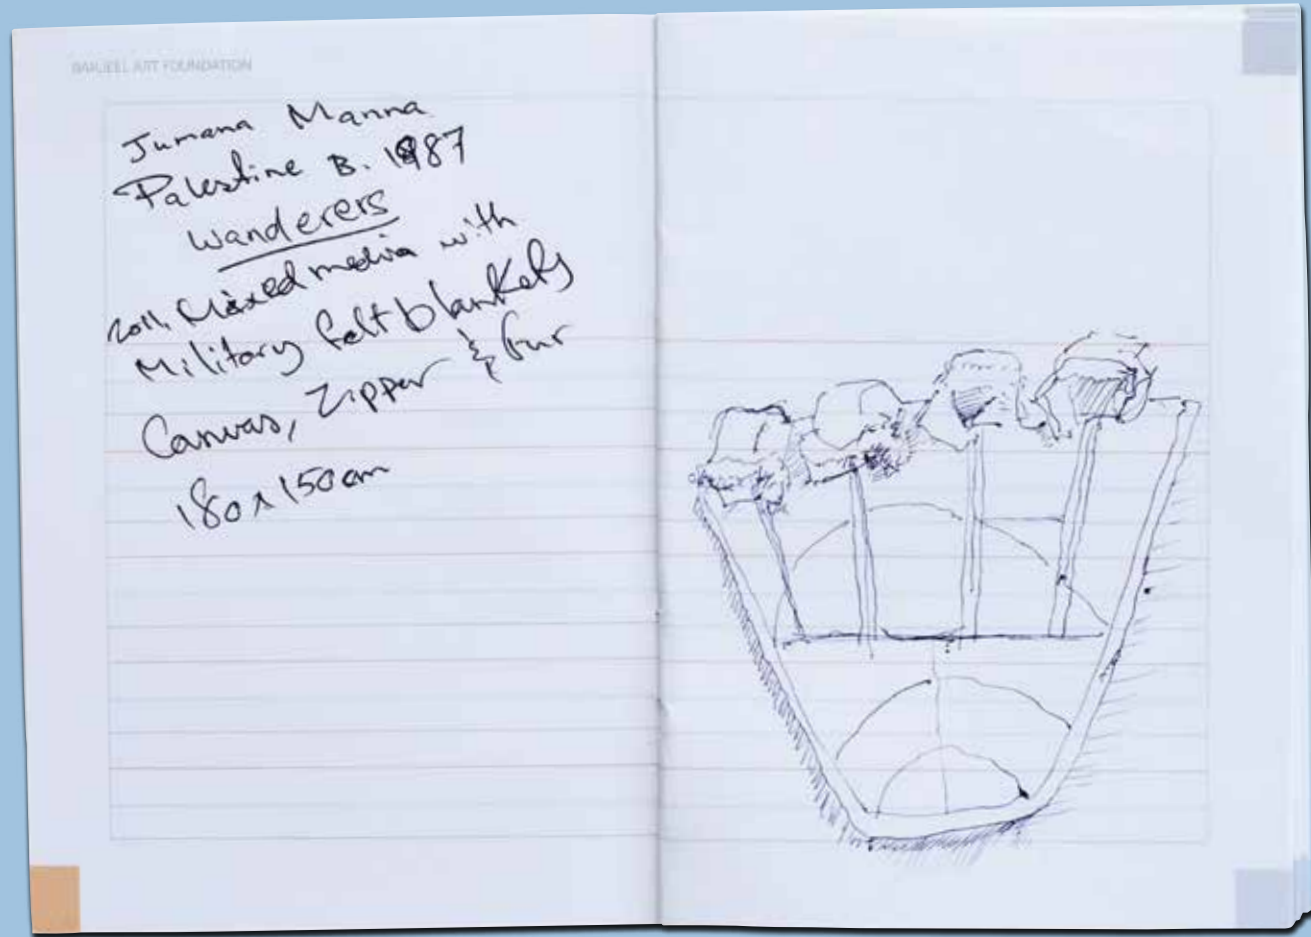 BARJEEL ART FOUNDATION
Jumana Manna
Palestine B. 1987
Wanderers
2011, Mixed media with
Military felt blankets
Canvas, Zipper & fur
180 x 150 cm